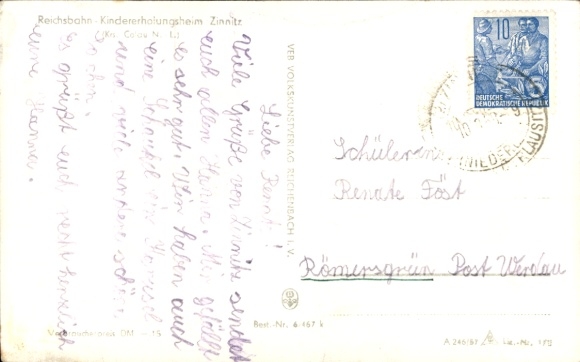 Reichsbahn-Kindererholungsheim Zinnitz
(Krs. Calau N. L.)
Liebe Renate!
Viele Grüße von Zinnitz sendet
euch allen Hanna. Mir gefällt
es sehr gut. Wir haben auch
eine Schaukel ein Karussel
und viele andere schöne
Sachen.
Es grüßt euch recht herzlich
eure Hanna.
Verbraucherpreis DM –.15
VEB VOLKSKUNSTVERLAG REICHENBACH i. V.
Best.-Nr. 6 167 k
10
DEUTSCHE
DEMOKRATISCHE REPUBLIK
Schülerin
Renate Föst
Römersgrün Post Werdau
A 246/57